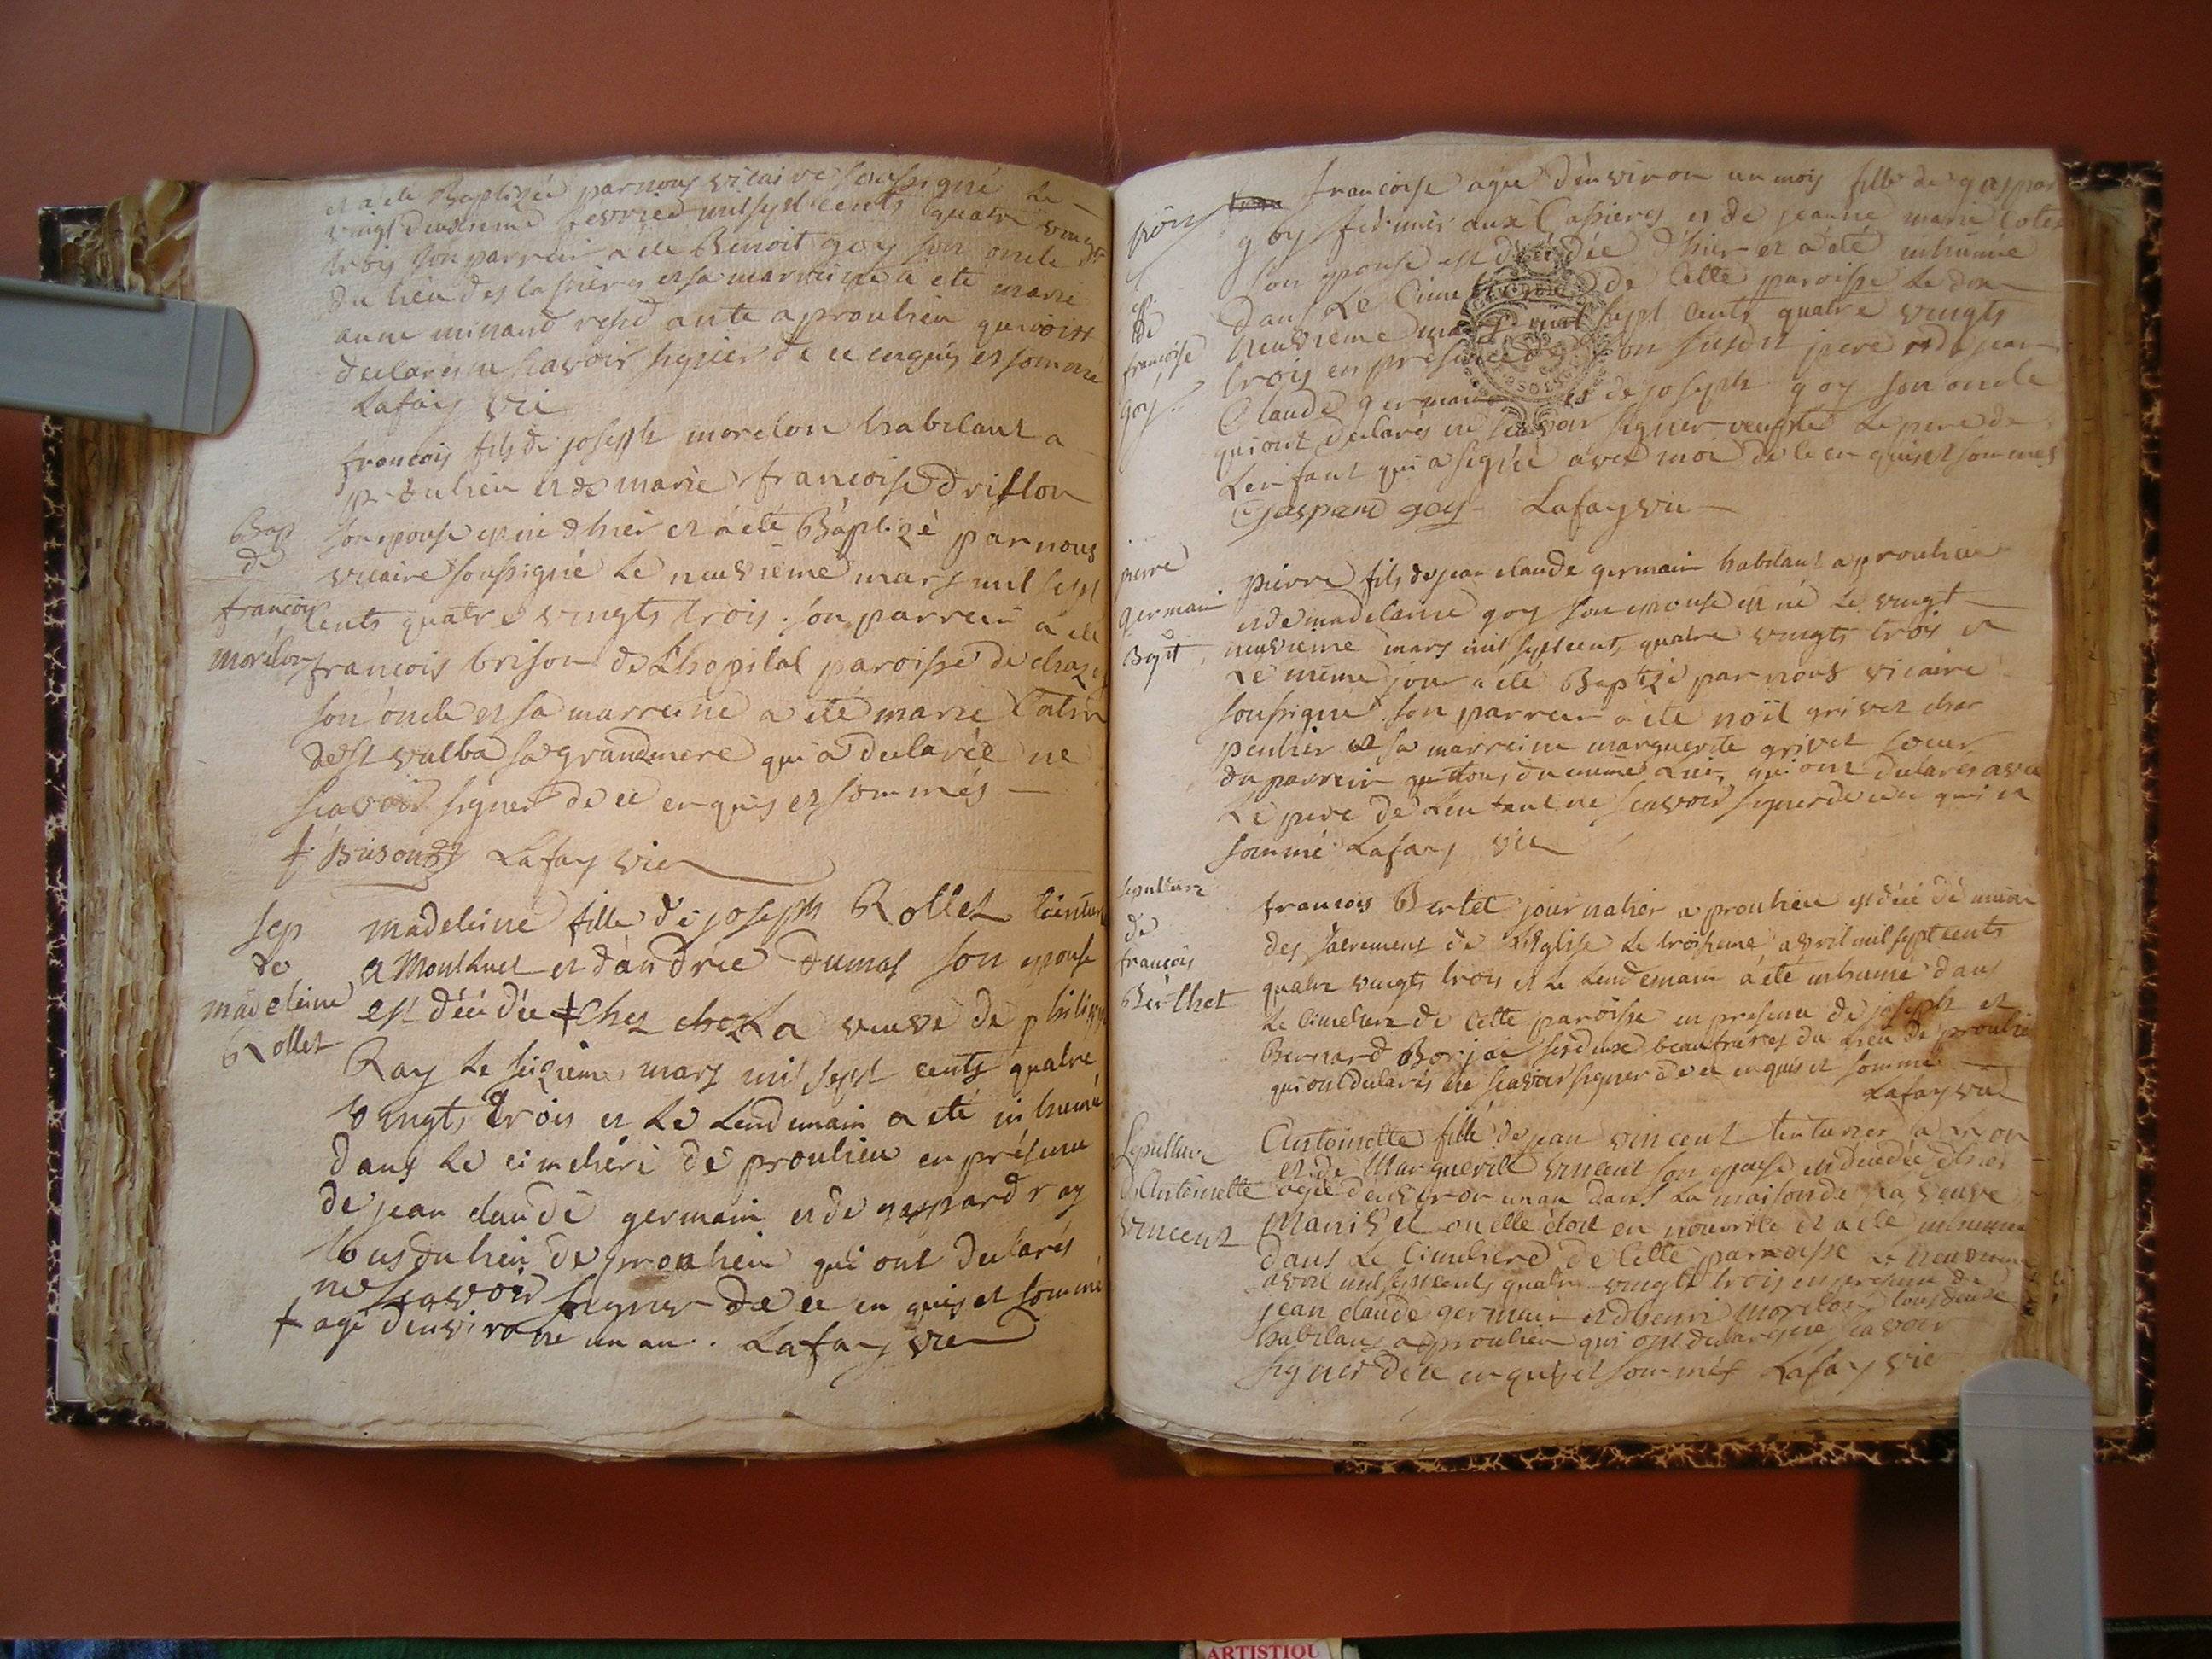 et a été Baptizée par nous vicaire soussigné Le
vingt deuxieme fevrier mil sept cents quatre vingt
trois son parrein a été Benoit goy son oncle
du lieu des lassieres et sa marreine a ete marie
anne minand residante a proulieu qui
declares ne scavoir signer de ce enquis et sommé
Lafay vic
francois fils de joseph morelon habitant a
proulieu et de marie francoise
Bap
son epouse est né d'hier et a été Baptizé par nous
de
vicaire soussigné Le neuvieme mars mil sept
francois
cents quatre vingts trois. son parrein a été
morelon
francois brison de L'hopital paroisse de
son oncle et sa marreine a été marie
de st vulba sa grandmere qui a declarée ne
scavoir signer de ce enquis et sommés
f. Brison Lafay vic
sep
madeleine fille de joseph Rollet
de
a Monthuel et d'andrée Dumas son epouse
madeleine
est décédée + chez chez La veuve de philippe
Rollet
Ray Le seizieme mars mil sept cents quatre
vingts trois et Le Lendemain a été inhumé
dans Le cimetiere de proulieu en présence
de jean claude germain et de gaspard ray
tous du lieu de proulieu qui ont declarés
ne scavoir signer de ce enquis et sommé
+ agé d'environ un an. Lafay vic
francoise agée d'environ un mois fille de gaspar
goy fermier aux Cassieres et de jeanne marie
son epouse est décédée d'hier et a été inhumé
dans Le Cimetiere de Cette paroisse Le
de
neuvieme mars mil sept cents quatre vingts
francoise
trois en presence de son susdit pere et de jean
goy.
Claude germain et de joseph goy son oncle
qui ont declarés ne scavoir signer Le pere de
Lenfant qui a signé avec moi de ce enquis et sommés
Gaspard goy Lafay vic
pierre
pierre fils de jean claude germain habitant a proulieu
germain
et de madelaine goy son epouse est né Le vingt
Bap.t
neuvieme mars mil sept cents quatre vingts trois et
Le même jour a été Baptizé par nous vicaire
soussigné. son parrein a été noil grivet char
pentier et sa marreine marguerite grivet soeur
du parrein tous du même Lieu, qui ont declarés avec
Le pere de Lenfant ne scavoir signer de ce enquis et
sommé Lafay vic
sepulture
francois Bertet journalier a proulieu est décédé muni
de
des sacrements de L'Eglise Le troisieme avril mil sept cents
francois
quatre vingts trois et Le Lendemain a été inhumé dans
Berthet
Le Cimetiere de Cette paroisse en presence de joseph et
Bernard Borjac ses deux beaufreres du Lieu de proulieu
qui ont declarés ne scavoir signer de ce enquis et sommé
Lafay vic
Sepulture
Antoinette fille de jean vincent a
et de Marguerite vincent son epouse est décédée d'hier
d'Antoinette
agée d'environ un an dans La maison de La veuve
vincent
ou elle étoit en nourrice et a été inhumé
dans Le Cimetiere de Cette paroisse Le neuvieme
avril mil sept cents quatre vingts trois en presence de
jean claude germain et d'henri morelon tous deux
habitans a proulieu qui ont declarés ne scavoir
signer de ce enquis et sommés Lafay vic
ARTISTIQU